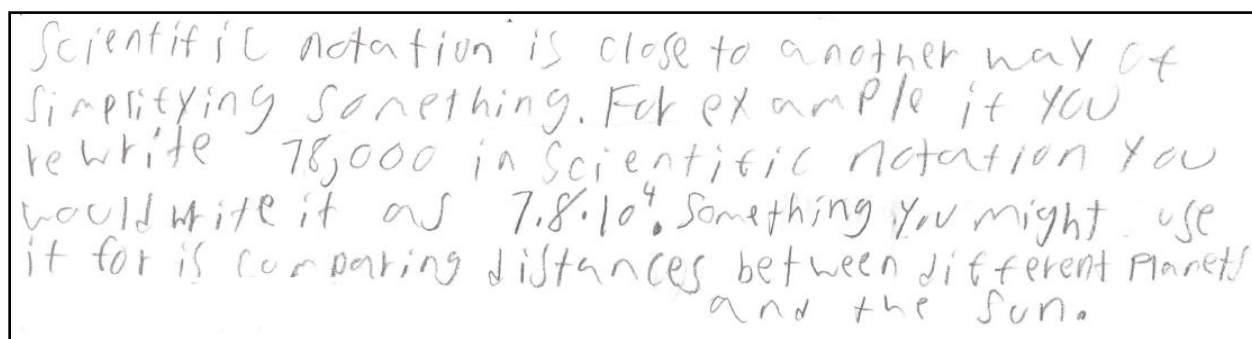 Scientific notation is close to another way of
simplifying something. For example if you
rewrite 78,000 in scientific notation you
would write it as 7.8·10⁴. Something you might use
it for is comparing distances between different planets
and the sun.